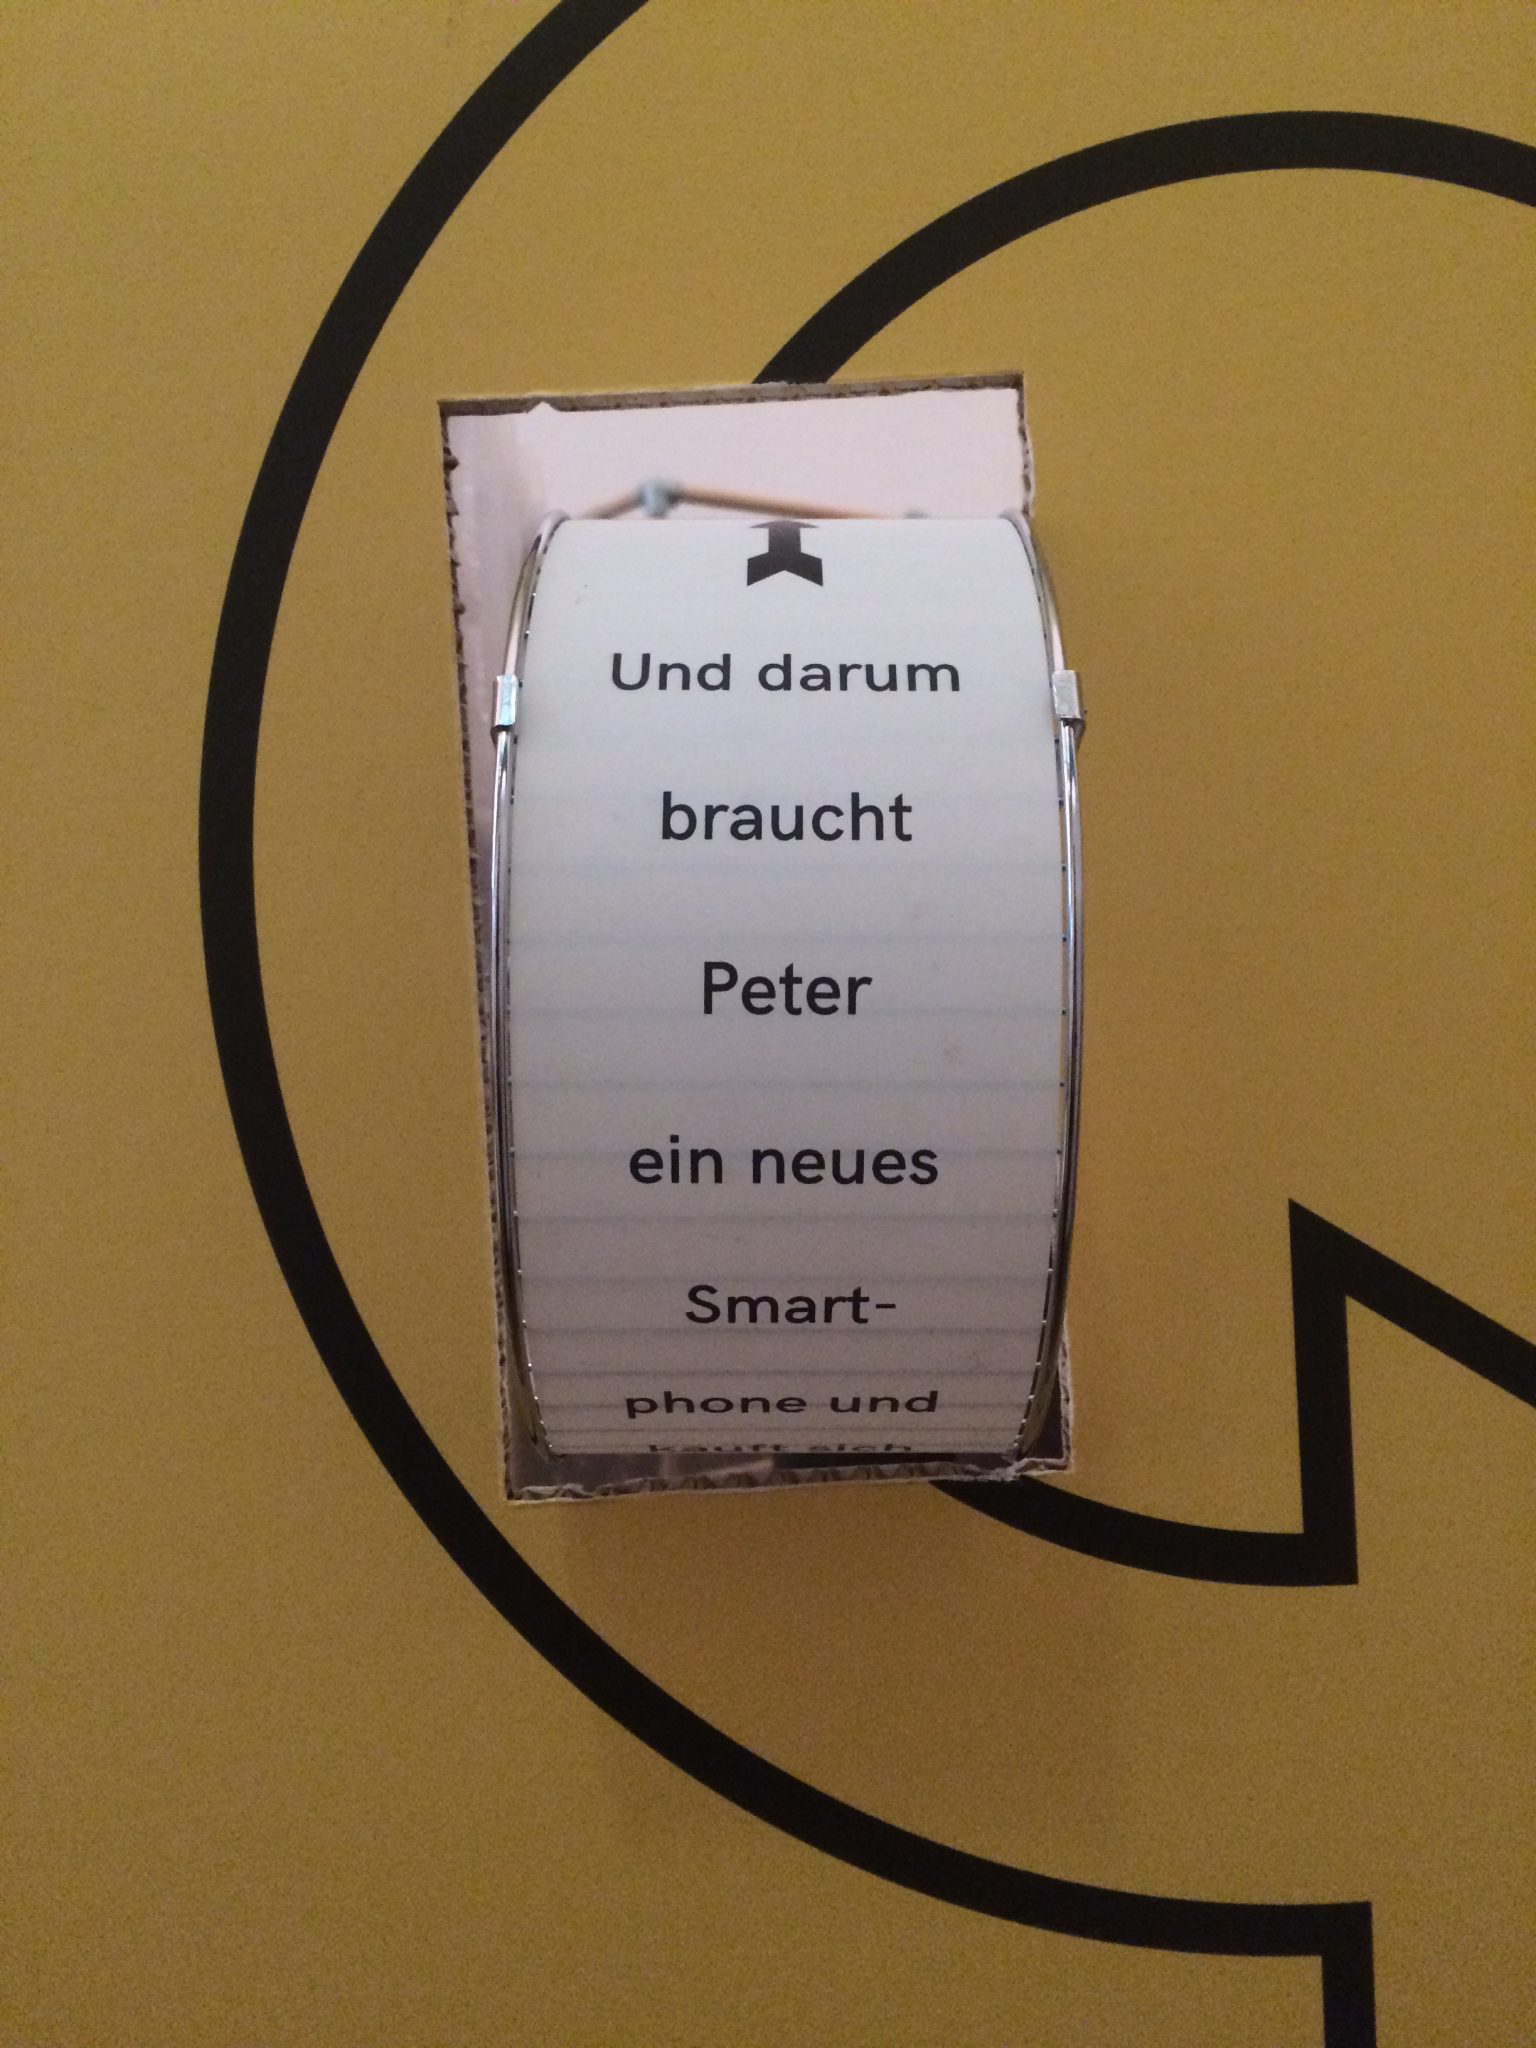 Und darum
braucht
Peter
ein neues
Smart-
phone und
kauft sich